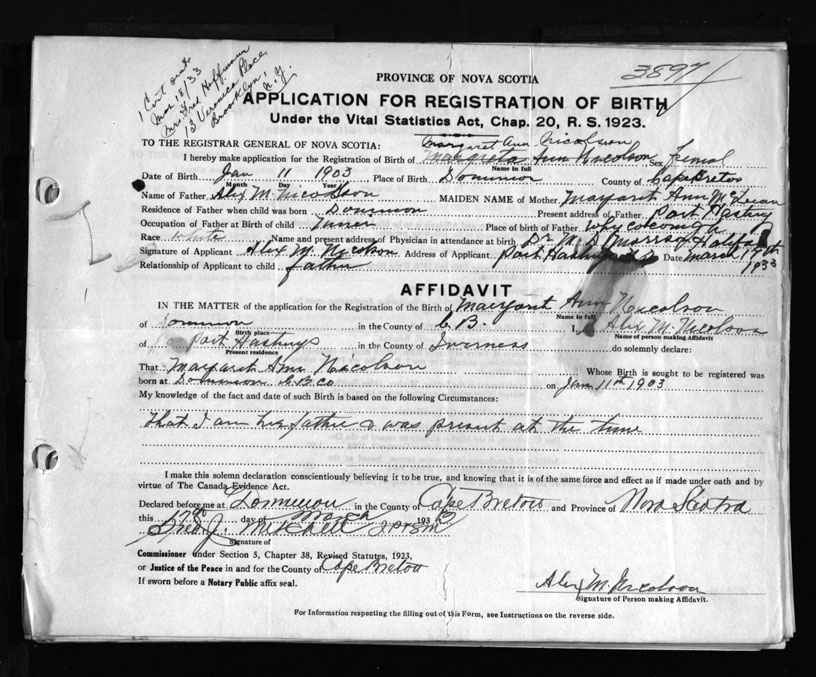 1 Cert out
Mar 18/33
Mrs Fred Hoffmann
13 Veronica Place
Brooklyn,
N.Y.
3897
PROVINCE OF NOVA SCOTIA
APPLICATION FOR REGISTRATION OF BIRTH
Under the Vital Statistics Act, Chap. 20, R. S. 1923.
Margaret Ann Nicolson
TO THE REGISTRAR GENERAL OF NOVA SCOTIA:
I hereby make application for the Registration of Birth of Margreta Ann Nicolson Sex Femal
Name in full
Date of Birth Jan 11 1903 Place of Birth Dominion County of Cape Breton
Month Day Year
Name of Father Alex M. Nicolson MAIDEN NAME of Mother Margaret Ann McLean
Residence of Father when child was born Dominion Present address of Father Port Hastings
Occupation of Father at Birth of child Place of birth of Father Whycocomagh
Race white Name and present address of Physician in attendance at birth Dr M. D. Morrison Halifax
Signature of Applicant Alex M. Nicolson Address of Applicant Port Hastings Date March 17th 1933
Relationship of Applicant to child father
AFFIDAVIT
IN THE MATTER of the application for the Registration of the Birth of Margaret Ann Nicolson
Name in full
of Dominion in the County of C. B. I, Alex M. Nicolson
Birth place Name of person making Affidavit
of Port Hastings in the County of Inverness do solemnly declare:
Present residence
That Margaret Ann Nicolson Whose Birth is sought to be registered was
born at Dominion C. B. Co on Jan 11th 1903
My knowledge of the fact and date of such Birth is based on the following Circumstances:
that I am her father & was present at the time
I make this solemn declaration conscientiously believing it to be true, and knowing that it is of the same force and effect as if made under oath and by
virtue of The Canada Evidence Act.
Declared before me at Dominion in the County of Cape Breton and Province of Nova Scotia
this 17th day of March 1933
Fred J. Mitchell
Signature of
Commissioner under Section 5, Chapter 38, Revised Statutes, 1923,
or Justice of the Peace in and for the County of Cape Breton
If sworn before a Notary Public affix seal.
Alex M. Nicolson
Signature of Person making Affidavit.
For Information respecting the filling out of this Form, see Instructions on the reverse side.